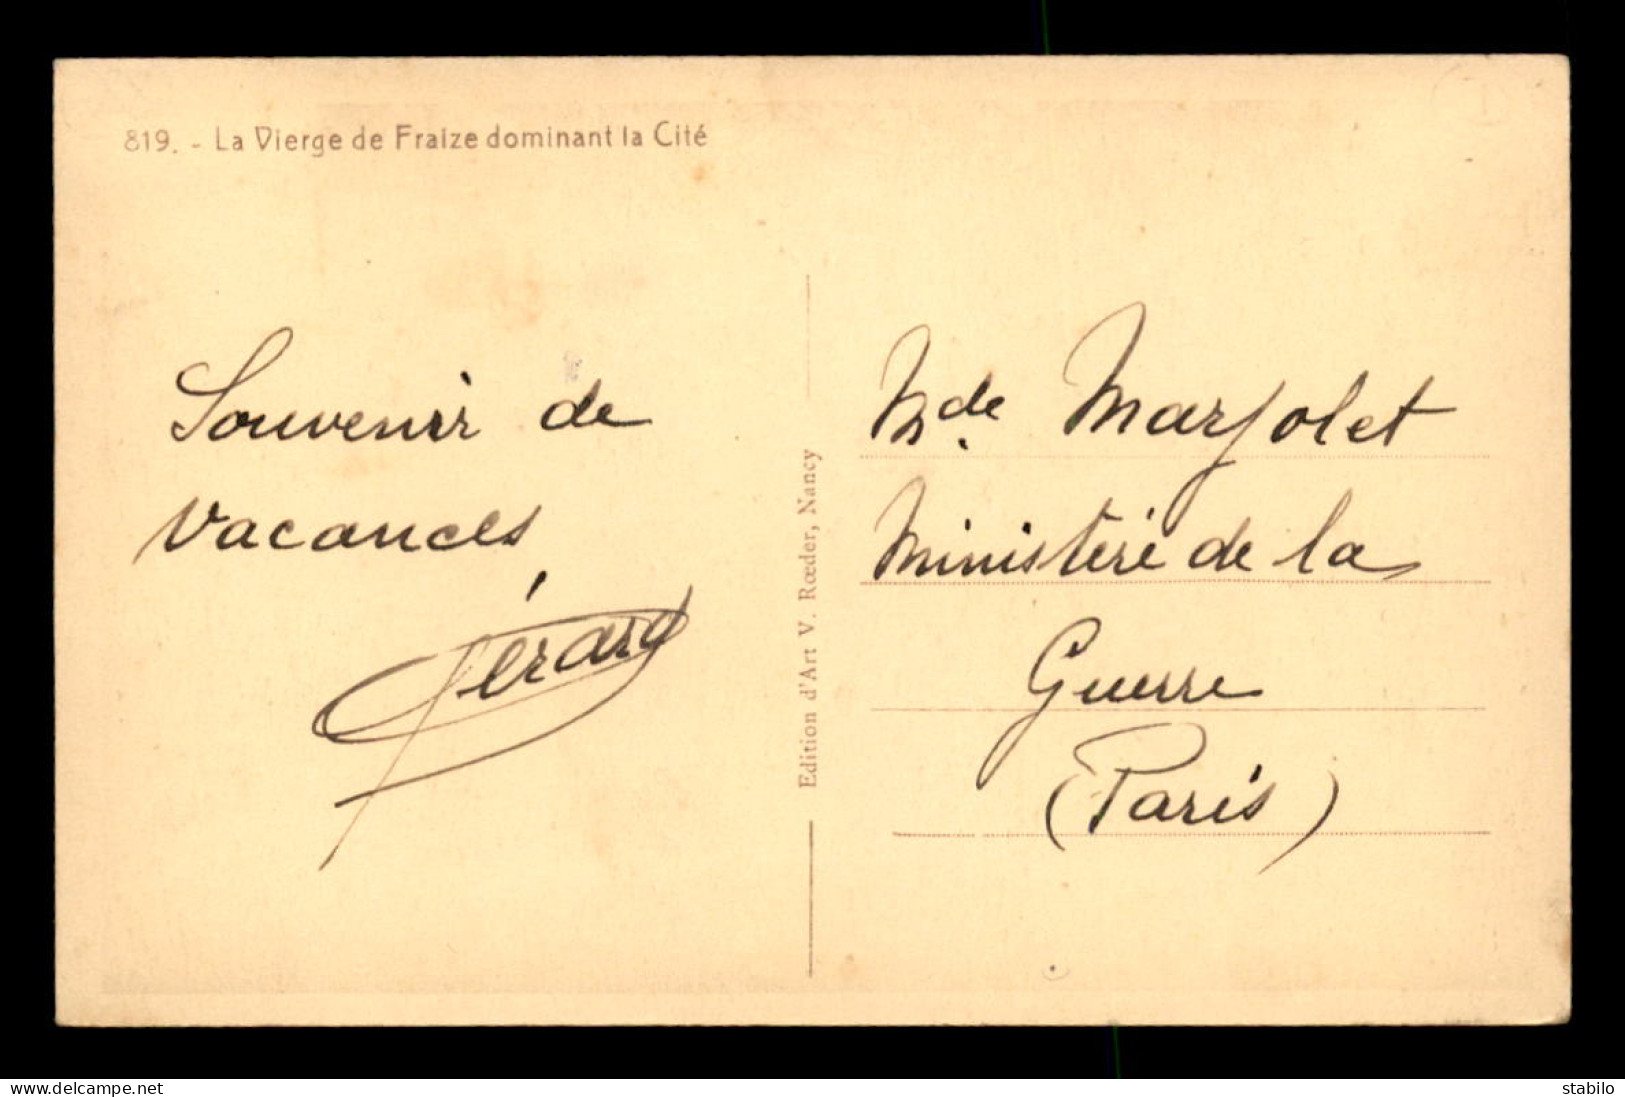 819. - La Vierge de Fraize dominant la Cité
Souvenir de
Vacances
Gérard
Edition d'Art V. Rœder, Nancy
Mde Marjolet
Ministère de la
Guerre
(Paris)
www.delcampe.net
stabilo